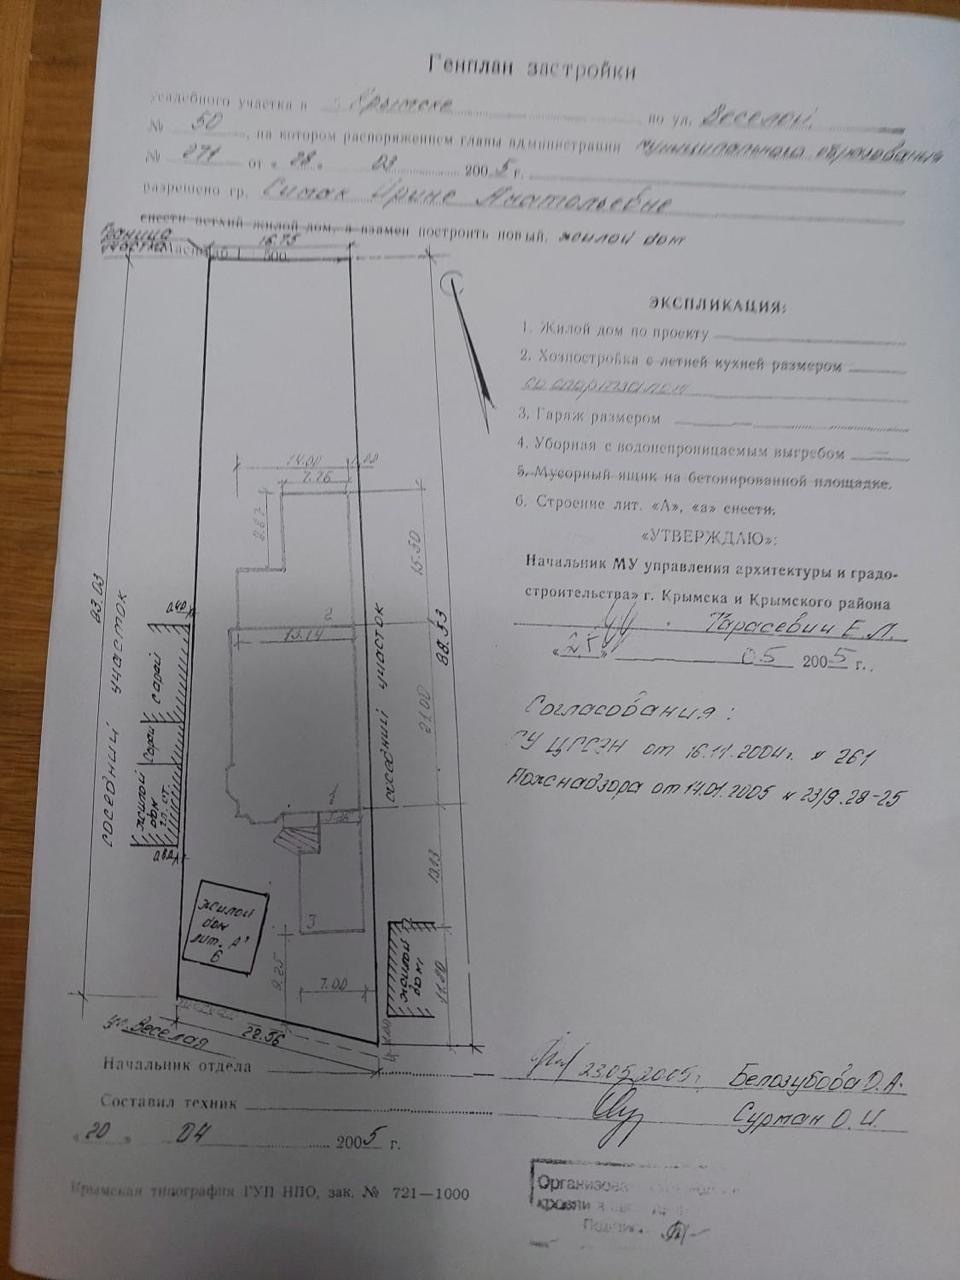 Генплан застройки
Усадебного участка в г. Крымске по ул. Веселой,
№ 50, на котором распоряжением главы администрации муниципального образования
№ 271 от «28» 03 2005 г.
разрешено гр. Симак Ирине Анатольевне
снести ветхий жилой дом, а взамен построить новый, жилой дом
Граница
участка
Масштаб 1 : 500
16.75
ЭКСПЛИКАЦИЯ:
1. Жилой дом по проекту
2. Хозпостройка с летней кухней размером
со спортзалом
3. Гараж размером
4. Уборная с водонепроницаемым выгребом
5. Мусорный ящик на бетонированной площадке.
6. Строение лит. «А», «а» снести.
«УТВЕРЖДАЮ»:
Начальник МУ управления архитектуры и градо-
строительства» г. Крымска и Крымского района
Тарасевич Е.Л.
«25» 05 2005 г.
Согласования:
ГУ ЦГСЭН от 16.11.2004г. № 261
Пожнадзора от 14.01.2005 № 23/9.28-25
14.00
1.00
7.76
15.30
83.03
соседний участок
сарай
сарай
жилой
дом
2
13.14
соседний участок
88.53
21.00
13.13
жилой
дом
лит. А'
6
3
9.25
7.00
жилой
дом
11.80
22.56
ул. Веселая
Начальник отдела 23.05.2005г. Белозубова О.А.
Составил техник Сурман О.И.
«20» 04 2005 г.
Крымская типография ГУП НПО, зак. № 721—1000
кровли